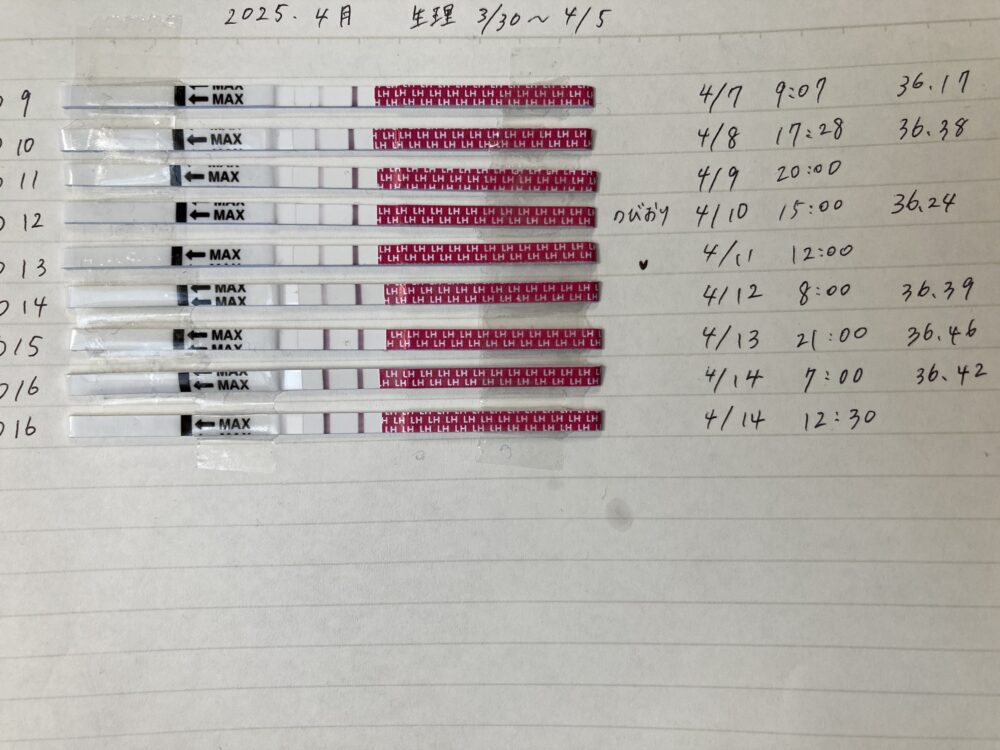 2025.4月 生理 3/30～4/5
D 9 MAX LH LH LH LH LH LH LH LH LH LH LH LH 4/7 9:07 36.17
D 10 MAX LH LH LH LH LH LH LH LH LH LH LH LH 4/8 17:28 36.38
D 11 MAX LH LH LH LH LH LH LH LH LH LH LH LH 4/9 20:00
D 12 MAX LH LH LH LH LH LH LH LH LH LH LH LH のびおり 4/10 15:00 36.24
D 13 MAX LH LH LH LH LH LH LH LH LH LH LH LH ♥ 4/11 12:00
D 14 MAX MAX LH LH LH LH LH LH LH LH LH LH LH LH 4/12 8:00 36.39
D 15 MAX LH LH LH LH LH LH LH LH LH LH LH LH 4/13 21:00 36.46
D 16 MAX MAX LH LH LH LH LH LH LH LH LH LH LH LH 4/14 7:00 36.42
D 16 MAX LH LH LH LH LH LH LH LH LH LH LH LH 4/14 12:30